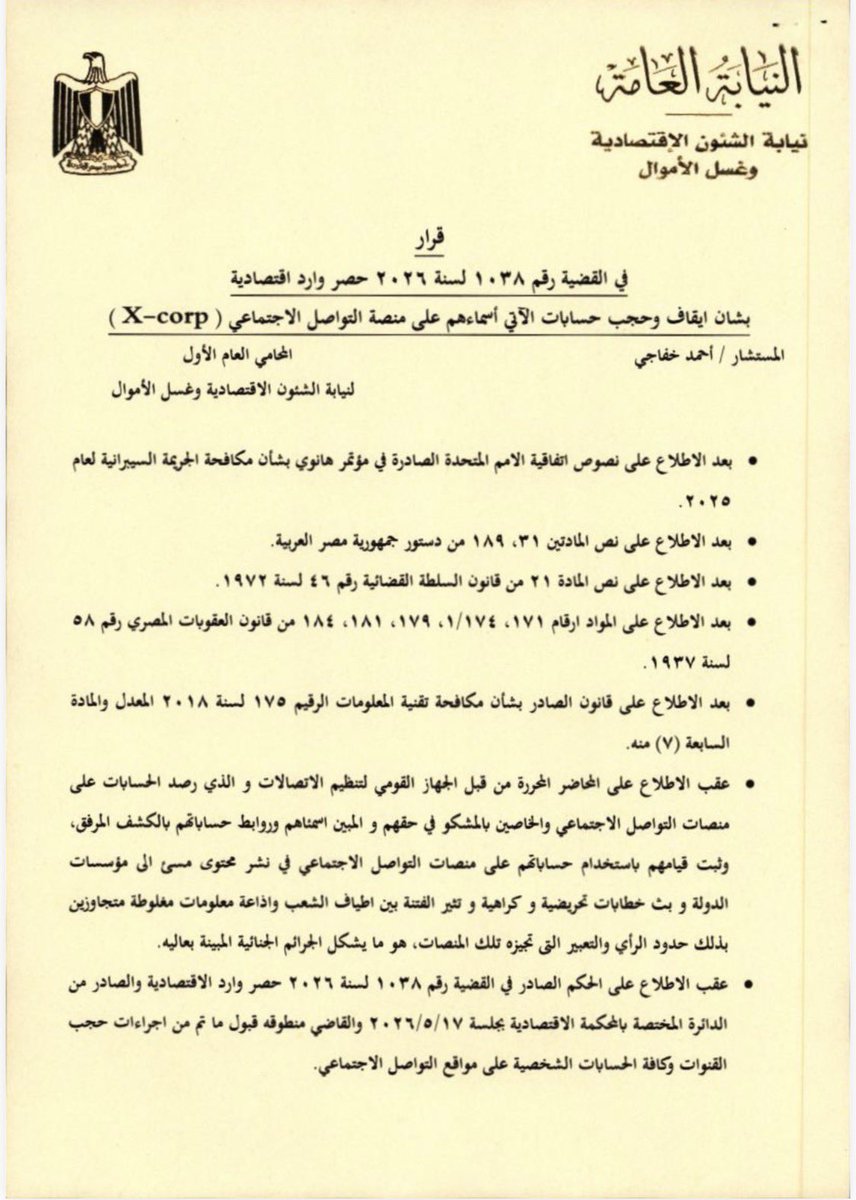 النيابة العامة
نيابة الشئون الإقتصادية
وغسل الأموال
قرار
في القضية رقم ١٠٣٨ لسنة ٢٠٢٦ حصر وارد اقتصادية
بشان ايقاف وحجب حسابات الآتي أسماءهم على منصة التواصل الاجتماعي ( X-corp )
المستشار / أحمد خفاجي المحامي العام الأول
لنيابة الشئون الاقتصادية وغسل الأموال
• بعد الاطلاع على نصوص اتفاقية الامم المتحدة الصادرة في مؤتمر هانوي بشأن مكافحة الجريمة السيبرانية لعام
٢٠٢٥.
• بعد الاطلاع على نص المادتين ٣١، ١٨٩ من دستور جمهورية مصر العربية.
• بعد الاطلاع على نص المادة ٢١ من قانون السلطة القضائية رقم ٤٦ لسنة ١٩٧٢.
• بعد الاطلاع على المواد ارقام ١٧١، ١/١٧٤، ١٧٩، ١٨١، ١٨٤ من قانون العقوبات المصري رقم ٥٨
لسنة ١٩٣٧.
• بعد الاطلاع على قانون الصادر بشأن مكافحة تقنية المعلومات الرقيم ١٧٥ لسنة ٢٠١٨ المعدل والمادة
السابعة (٧) منه.
• عقب الاطلاع على المحاضر المحررة من قبل الجهاز القومي لتنظيم الاتصالات و الذي رصد الحسابات على
منصات التواصل الاجتماعي والخاصين بالمشكو في حقهم و المبين اسمئاهم وروابط حساباتهم بالكشف المرفق،
وثبت قيامهم باستخدام حساباتهم على منصات التواصل الاجتماعي في نشر محتوى مسئ الى مؤسسات
الدولة و بث خطابات تحريضية و كراهية و تثير الفتنة بين اطياف الشعب واذاعة معلومات مغلوطة متجاوزين
بذلك حدود الرأي والتعبير التى تجيزه تلك المنصات، هو ما يشكل الجرائم الجنائية المبينة بعاليه.
• عقب الاطلاع على الحكم الصادر في القضية رقم ١٠٣٨ لسنة ٢٠٢٦ حصر وارد الاقتصادية والصادر من
الدائرة المختصة بالمحكمة الاقتصادية بجلسة ٢٠٢٦/٥/١٧ والقاضي منطوقه قبول ما تم من اجراءات حجب
القنوات وكافة الحسابات الشخصية على مواقع التواصل الاجتماعي.